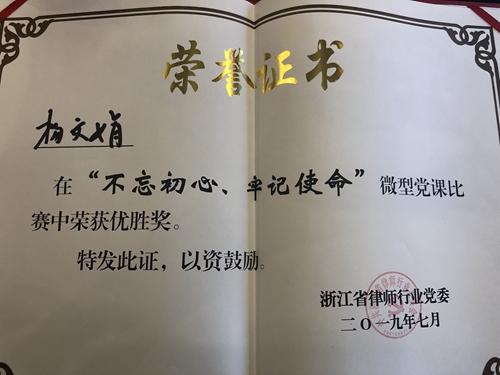 荣誉证书
杨文娟
在“不忘初心、牢记使命”微型党课比
赛中荣获优胜奖。
特发此证，以资鼓励。
浙江省律师行业党委
二〇一九年七月